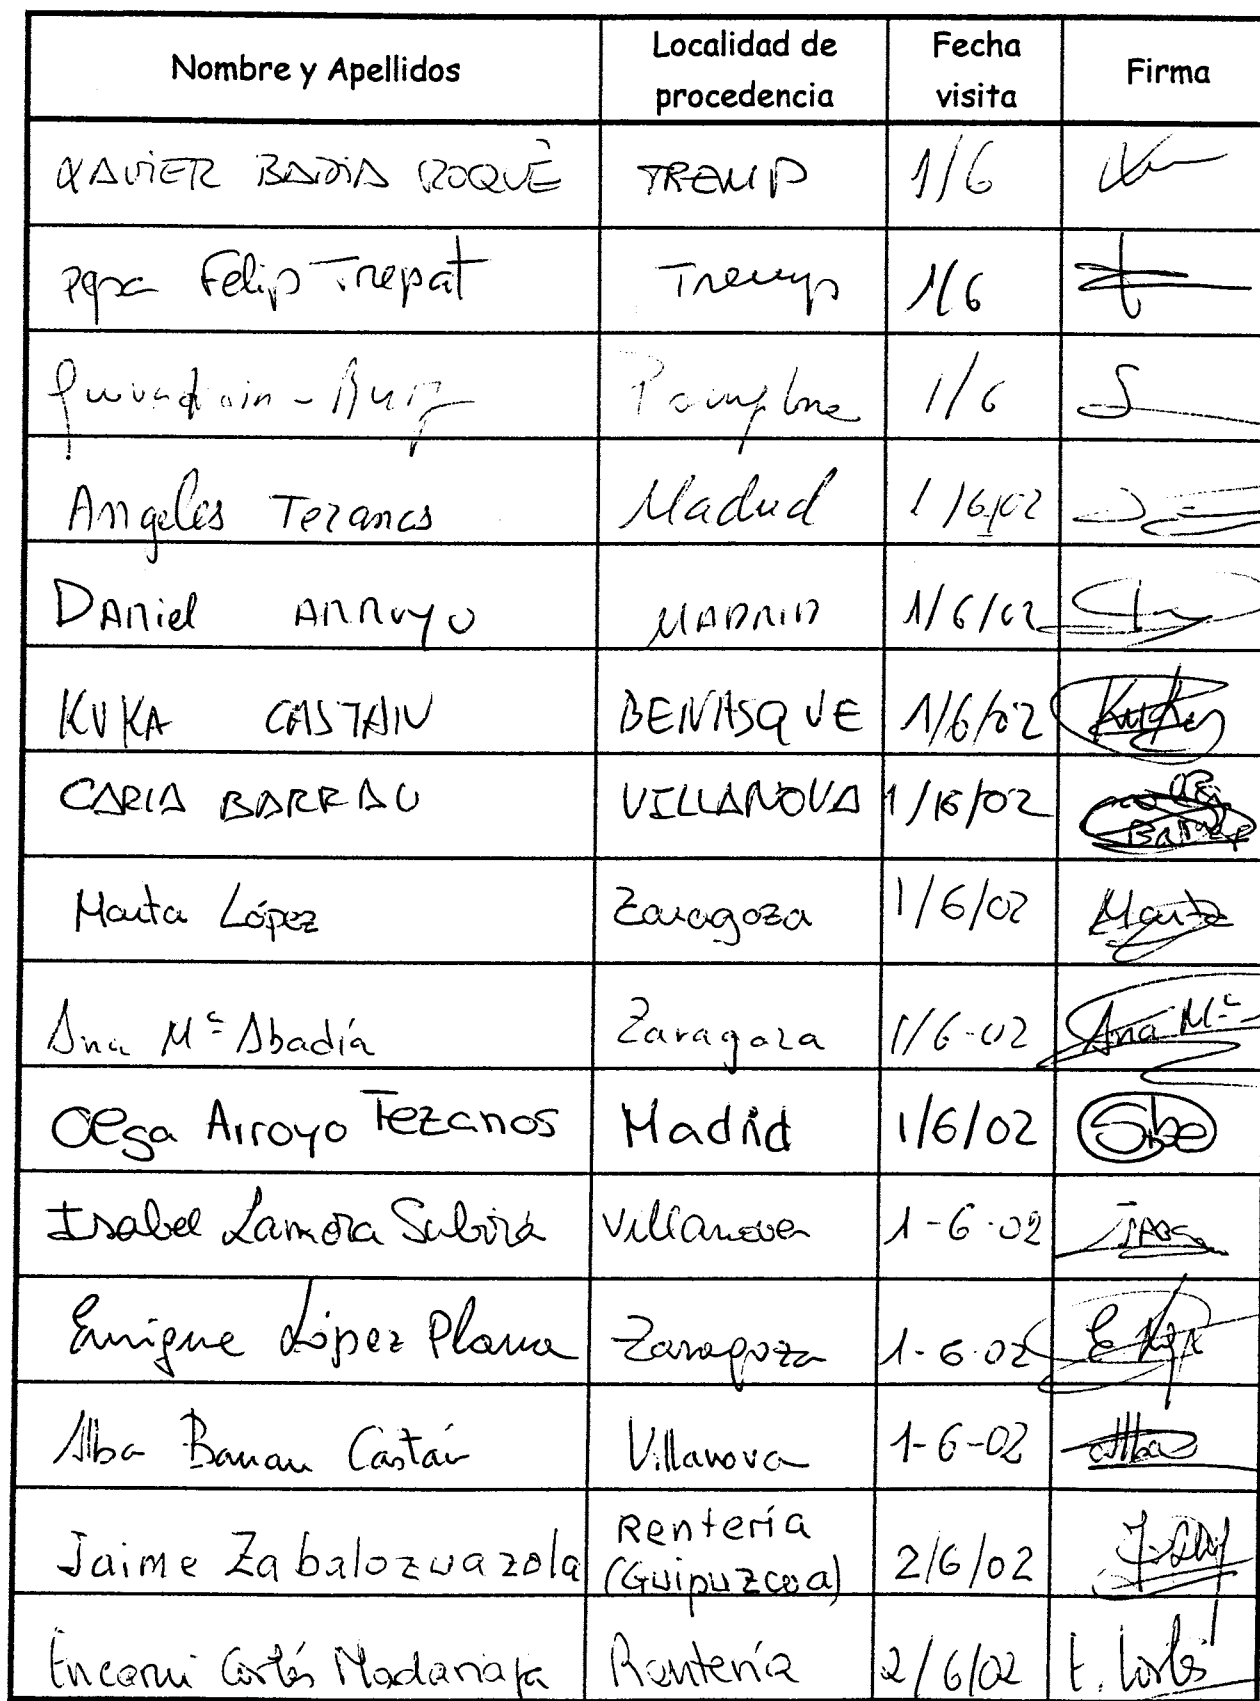 Nombre y Apellidos Localidad de procedencia Fecha visita Firma
XAVIER BADIA ROQUÈ TREMP 1/6
Pepa Felip Trepat Tremp 1/6
Pamplona 1/6
Angeles Tezanos Madrid 1/6/02
DANiel ARROYO MADRID 1/6/02
KUKA CASTAN BENASQUE 1/6/02 Kuka
CARLA BARRAU VILLANOVA 1/6/02 Barrau
Marta López Zaragoza 1/6/02 Marta
Ana Mª Abadía Zaragoza 1/6-02 Ana Mª
Olga Arroyo Tezanos Madrid 1/6/02
Isabel Lamora Subirá Villanova 1-6-02
Enrique López Plana Zaragoza 1-6-02
Alba Barrau Castán Villanova 1-6-02 Alba
Jaime Zabalozuazola Rentería (Guipuzcoa) 2/6/02
Encarni Cortés Rentería 2/6/02 E. Cortés